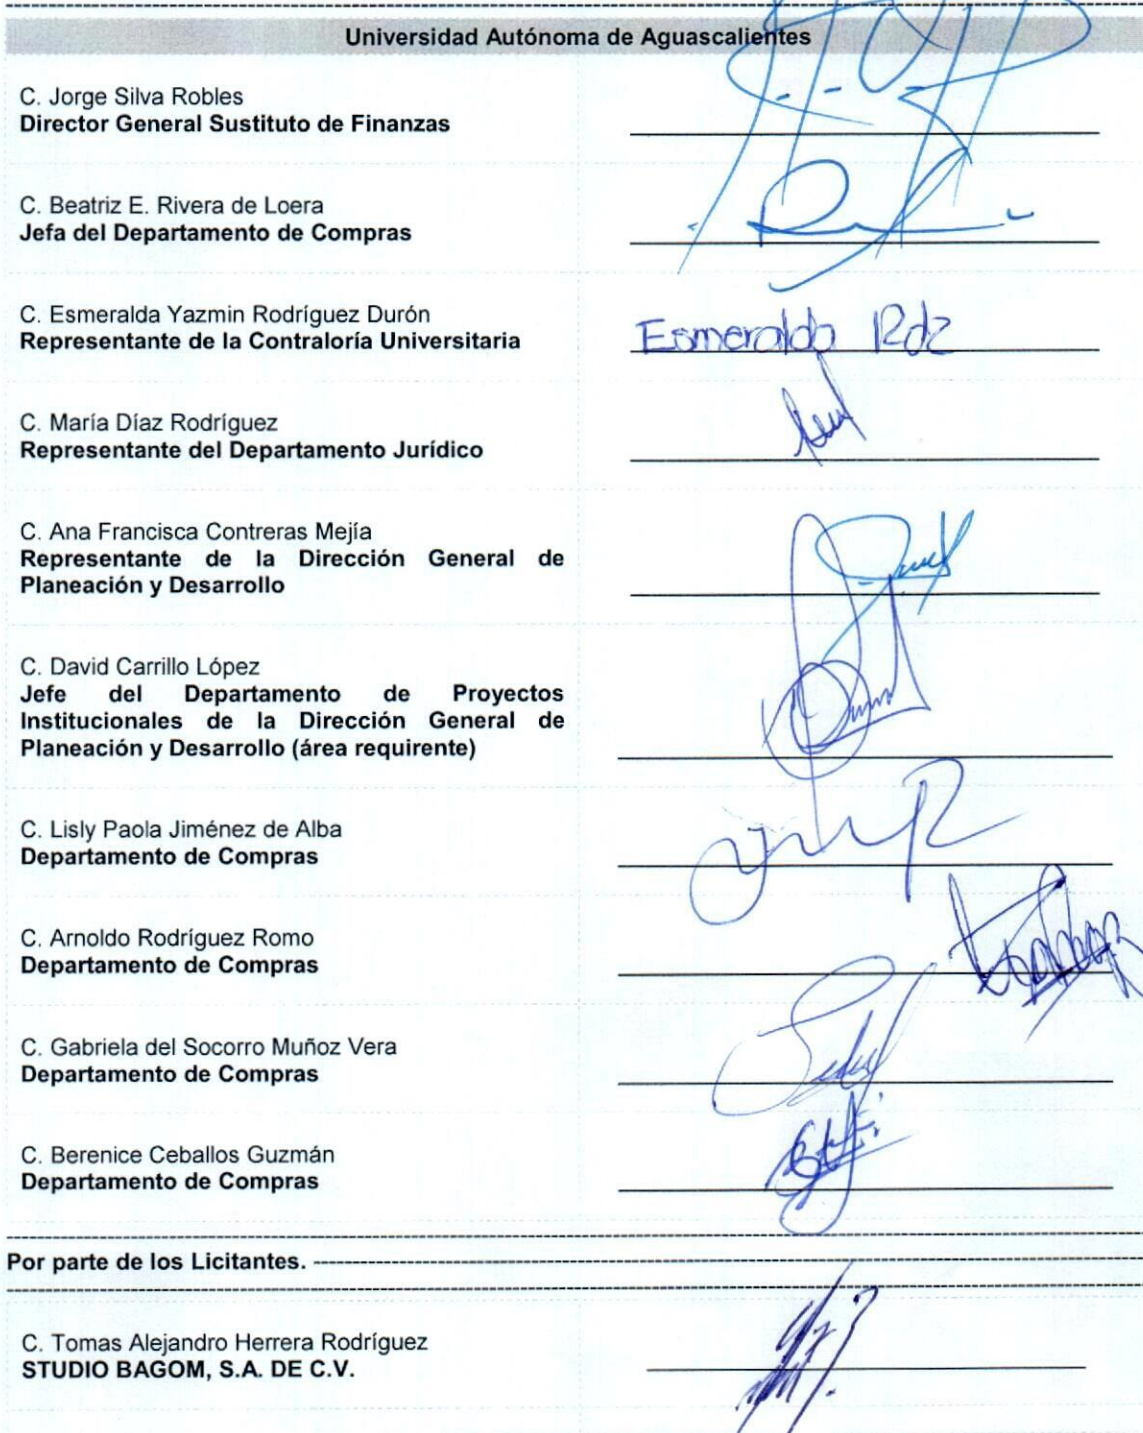 Universidad Autónoma de Aguascalientes
C. Jorge Silva Robles
Director General Sustituto de Finanzas
C. Beatriz E. Rivera de Loera
Jefa del Departamento de Compras
C. Esmeralda Yazmin Rodríguez Durón
Representante de la Contraloría Universitaria
Esmeralda Rdz
C. María Díaz Rodríguez
Representante del Departamento Jurídico
C. Ana Francisca Contreras Mejía
Representante de la Dirección General de
Planeación y Desarrollo
C. David Carrillo López
Jefe del Departamento de Proyectos
Institucionales de la Dirección General de
Planeación y Desarrollo (área requirente)
C. Lisly Paola Jiménez de Alba
Departamento de Compras
C. Arnoldo Rodríguez Romo
Departamento de Compras
C. Gabriela del Socorro Muñoz Vera
Departamento de Compras
C. Berenice Ceballos Guzmán
Departamento de Compras
Por parte de los Licitantes.
C. Tomas Alejandro Herrera Rodríguez
STUDIO BAGOM, S.A. DE C.V.